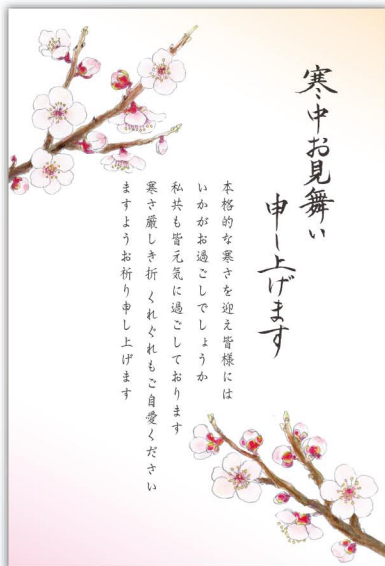 寒中お見舞い
申し上げます
本格的な寒さを迎え皆様には
いかがお過ごしでしょうか
私共も皆元気に過ごしております
寒さ厳しき折 くれぐれもご自愛ください
ますようお祈り申し上げます